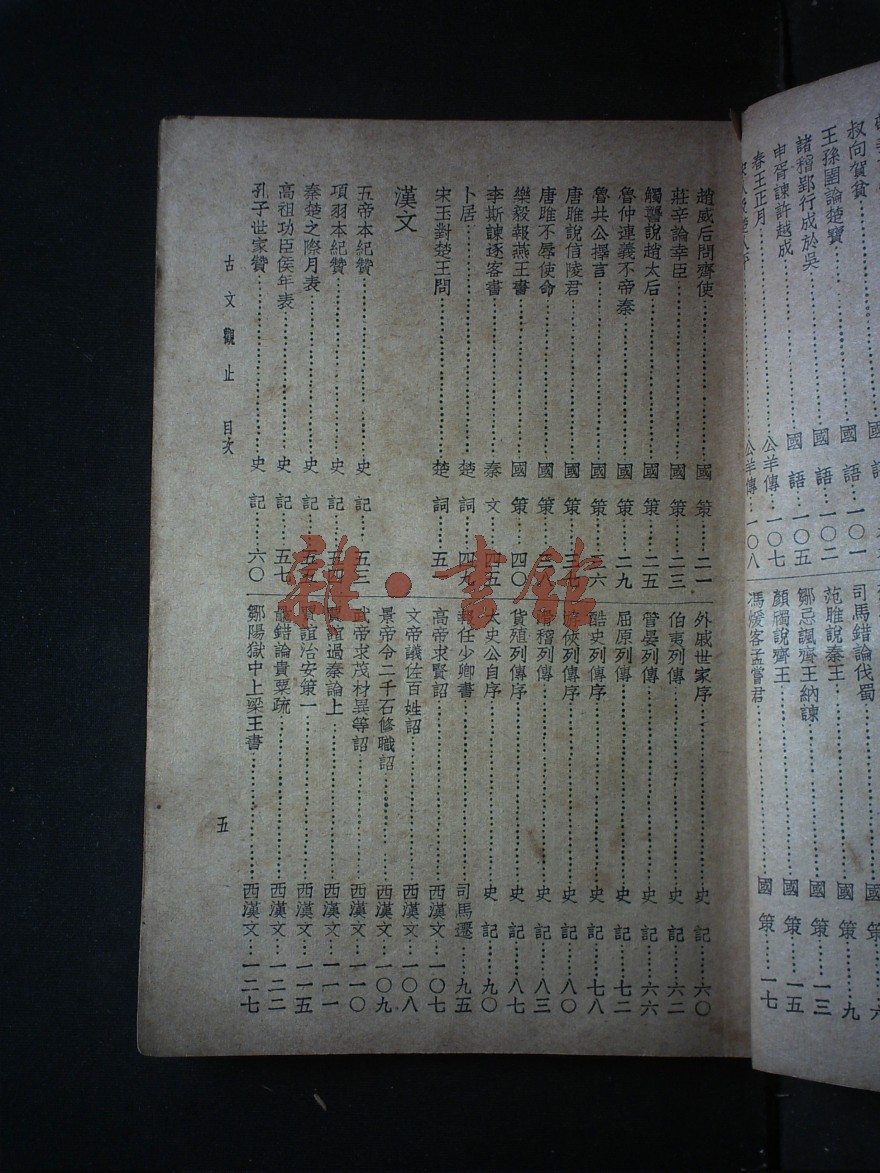 叔向賀貧
王孫圉論楚寶……國語……一〇一
諸稽郢行成於吳……國語……一〇二
申胥諫許越成……國語……一〇五
春王正月……公羊傳……一〇七
公羊傳……一〇八
國策……六
司馬錯論伐蜀……國策……九
范雎說秦王……國策……一三
鄒忌諷齊王納諫……國策……一五
顏斶說齊王……國策……一七
馮煖客孟嘗君……國策
趙威后問齊使……國策……二一
莊辛論幸臣……國策……二三
觸讋說趙太后……國策……二五
魯仲連義不帝秦……國策……二九
魯共公擇言……國策……三六
唐雎說信陵君……國策……三七
唐雎不辱使命……國策……三八
樂毅報燕王書……國策……四〇
李斯諫逐客書……秦文……四五
卜居……楚詞……四九
宋玉對楚王問……楚詞……五
漢文
五帝本紀贊……史記……五三
項羽本紀贊……史記……五四
秦楚之際月表……史記……五五
高祖功臣侯年表……史記……五七
孔子世家贊……史記……六〇
外戚世家序……史記……六〇
伯夷列傳……史記……六二
管晏列傳……史記……六六
屈原列傳……史記……七二
酷吏列傳序……史記……七八
游俠列傳序……史記……八〇
滑稽列傳……史記……八三
貨殖列傳序……史記……八七
太史公自序……史記……九〇
報任少卿書……司馬遷……九五
高帝求賢詔……西漢文……一〇七
文帝議佐百姓詔……西漢文……一〇八
景帝令二千石修職詔……西漢文……一〇九
武帝求茂材異等詔……西漢文……一一〇
賈誼過秦論上……西漢文……一一一
賈誼治安策一……西漢文……一一五
鼂錯論貴粟疏……西漢文……一二二
鄒陽獄中上梁王書……西漢文……一二七
古文觀止 目次
五
雜·書館